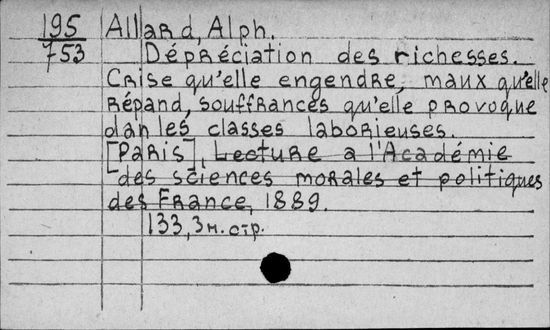 195 Allard, Alph.
753 Dépréciation des richesses.
Crise qu'elle engendre, maux qu'elle
répand, souffrances qu'elle provoque
dan les classes laborieuses.
[Paris], Lecture a l'Académie
des sciences morales et politiques
des France, 1889.
133, 3 н. стр.